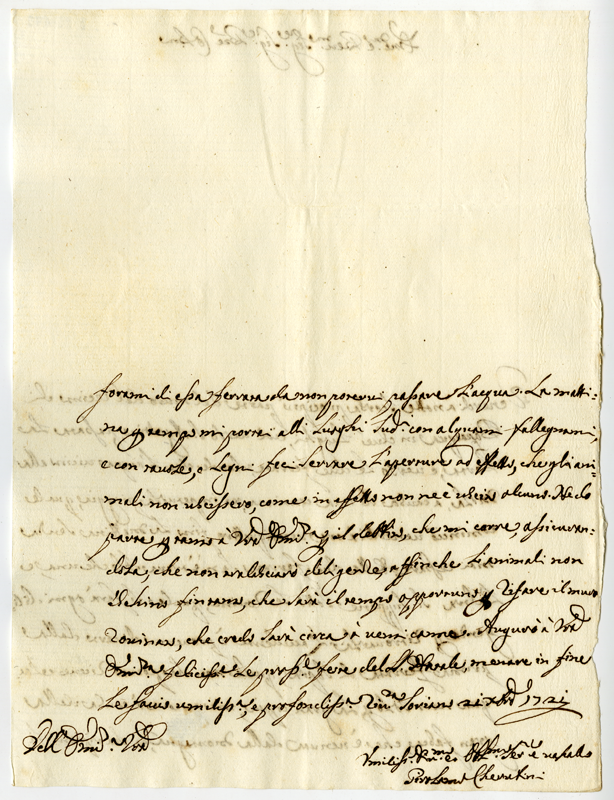 forami di essa serrata da non potervi passare l'acqua. La matti=
na per tempo mi portai alli luoghi sud.i con alquanti fallegnami,
e con tavole, o legni feci serrare l'aperture ad effetto, che gli ani=
mali non uscissero, come in effetto non ne è uscito alcuno. Ne do
parte per tanto à V.ra Em.za per il debito, che mi corre, assicuran=
dola, che non tralasciarò diligenze, affinche l'animali non
eschino fintanto, che sarà il tempo opportuno per rifare il muro
rovinato, che credo sarà circa à venti canne. Auguro à V.ra
Em.za felicis.e le pross.e feste del S. Natale, mentre in fine
le faccio umiliss.a, e profondiss.a riv.za Soriano 21 Xbre 1721
Dell' Em.za V.ra
Umiliss.o Dev.mo ed Obb.mo Ser.e e vassallo
Girolamo